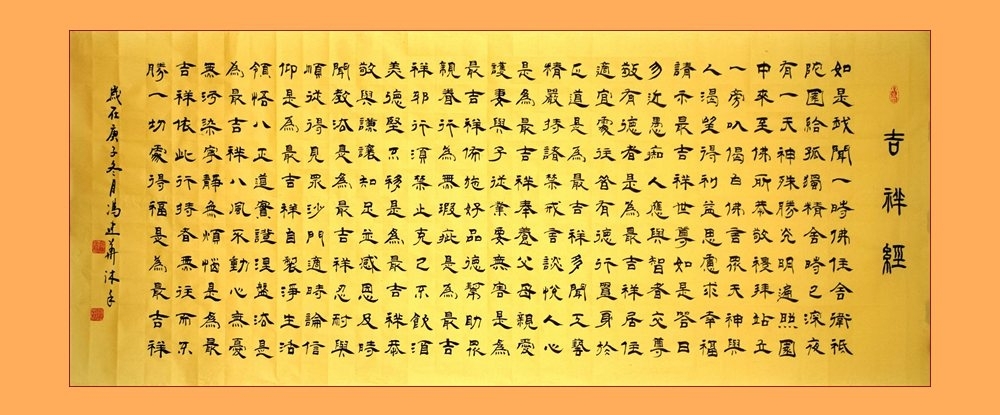 吉祥經
如是我聞一時佛住舍衛祇
陀園給孤獨精舍時已深夜
有一天神殊勝光明遍照園
中來至佛所恭敬禮拜站立
一旁以偈白佛言眾天神與
人渴望得利益思慮求幸福
請示最吉祥世尊如是答曰
勿近愚痴人應與智者交尊
敬有德者是為最吉祥居住
適宜處往昔有德行置身於
正道是為最吉祥多聞工藝
精嚴持諸禁戒言談悅人心
是為最吉祥奉養父母親愛
護妻與子從業要無害是為
最吉祥佈施好品德幫助眾
親眷行為無瑕疵是為最吉
祥邪行須禁止克己不飲酒
美德堅不移是為最吉祥恭
敬與謙讓知足並感恩及時
聞教法是為最吉祥忍耐與
順從得見眾沙門適時論信
仰是為最吉祥自製淨生活
領悟八正道實證涅盤法是
為最吉祥八風不動心無憂
無污染寧靜無煩惱是為最
吉祥依此行持者無往而不
勝一切處得福是為最吉祥
歲在庚子冬月馮建華沐手